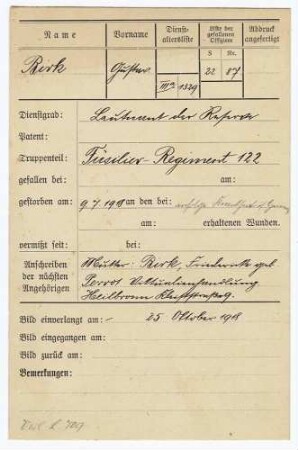 Name Vorname Dienstaltersliste Liste der gefallenen Offiziere Abdruck angefertigt
S Nr.
Berk Gustav 1329 22 87
Dienstgrad: Leutnant der Reserve
Patent:
Truppenteil: Füsilier-Regiment 122
gefallen bei: am:
gestorben am: 9.7.1918 an den bei:
am: erhaltenen Wunden.
vermißt seit: bei:
Anschreiben der nächsten Angehörigen
Mutter: Berk, Friederike geb
Viktualienhandlung
Heilbronn
Bild einverlangt am: 25 Oktober 1918
Bild eingegangen am:
Bild zurück am:
Bemerkungen: